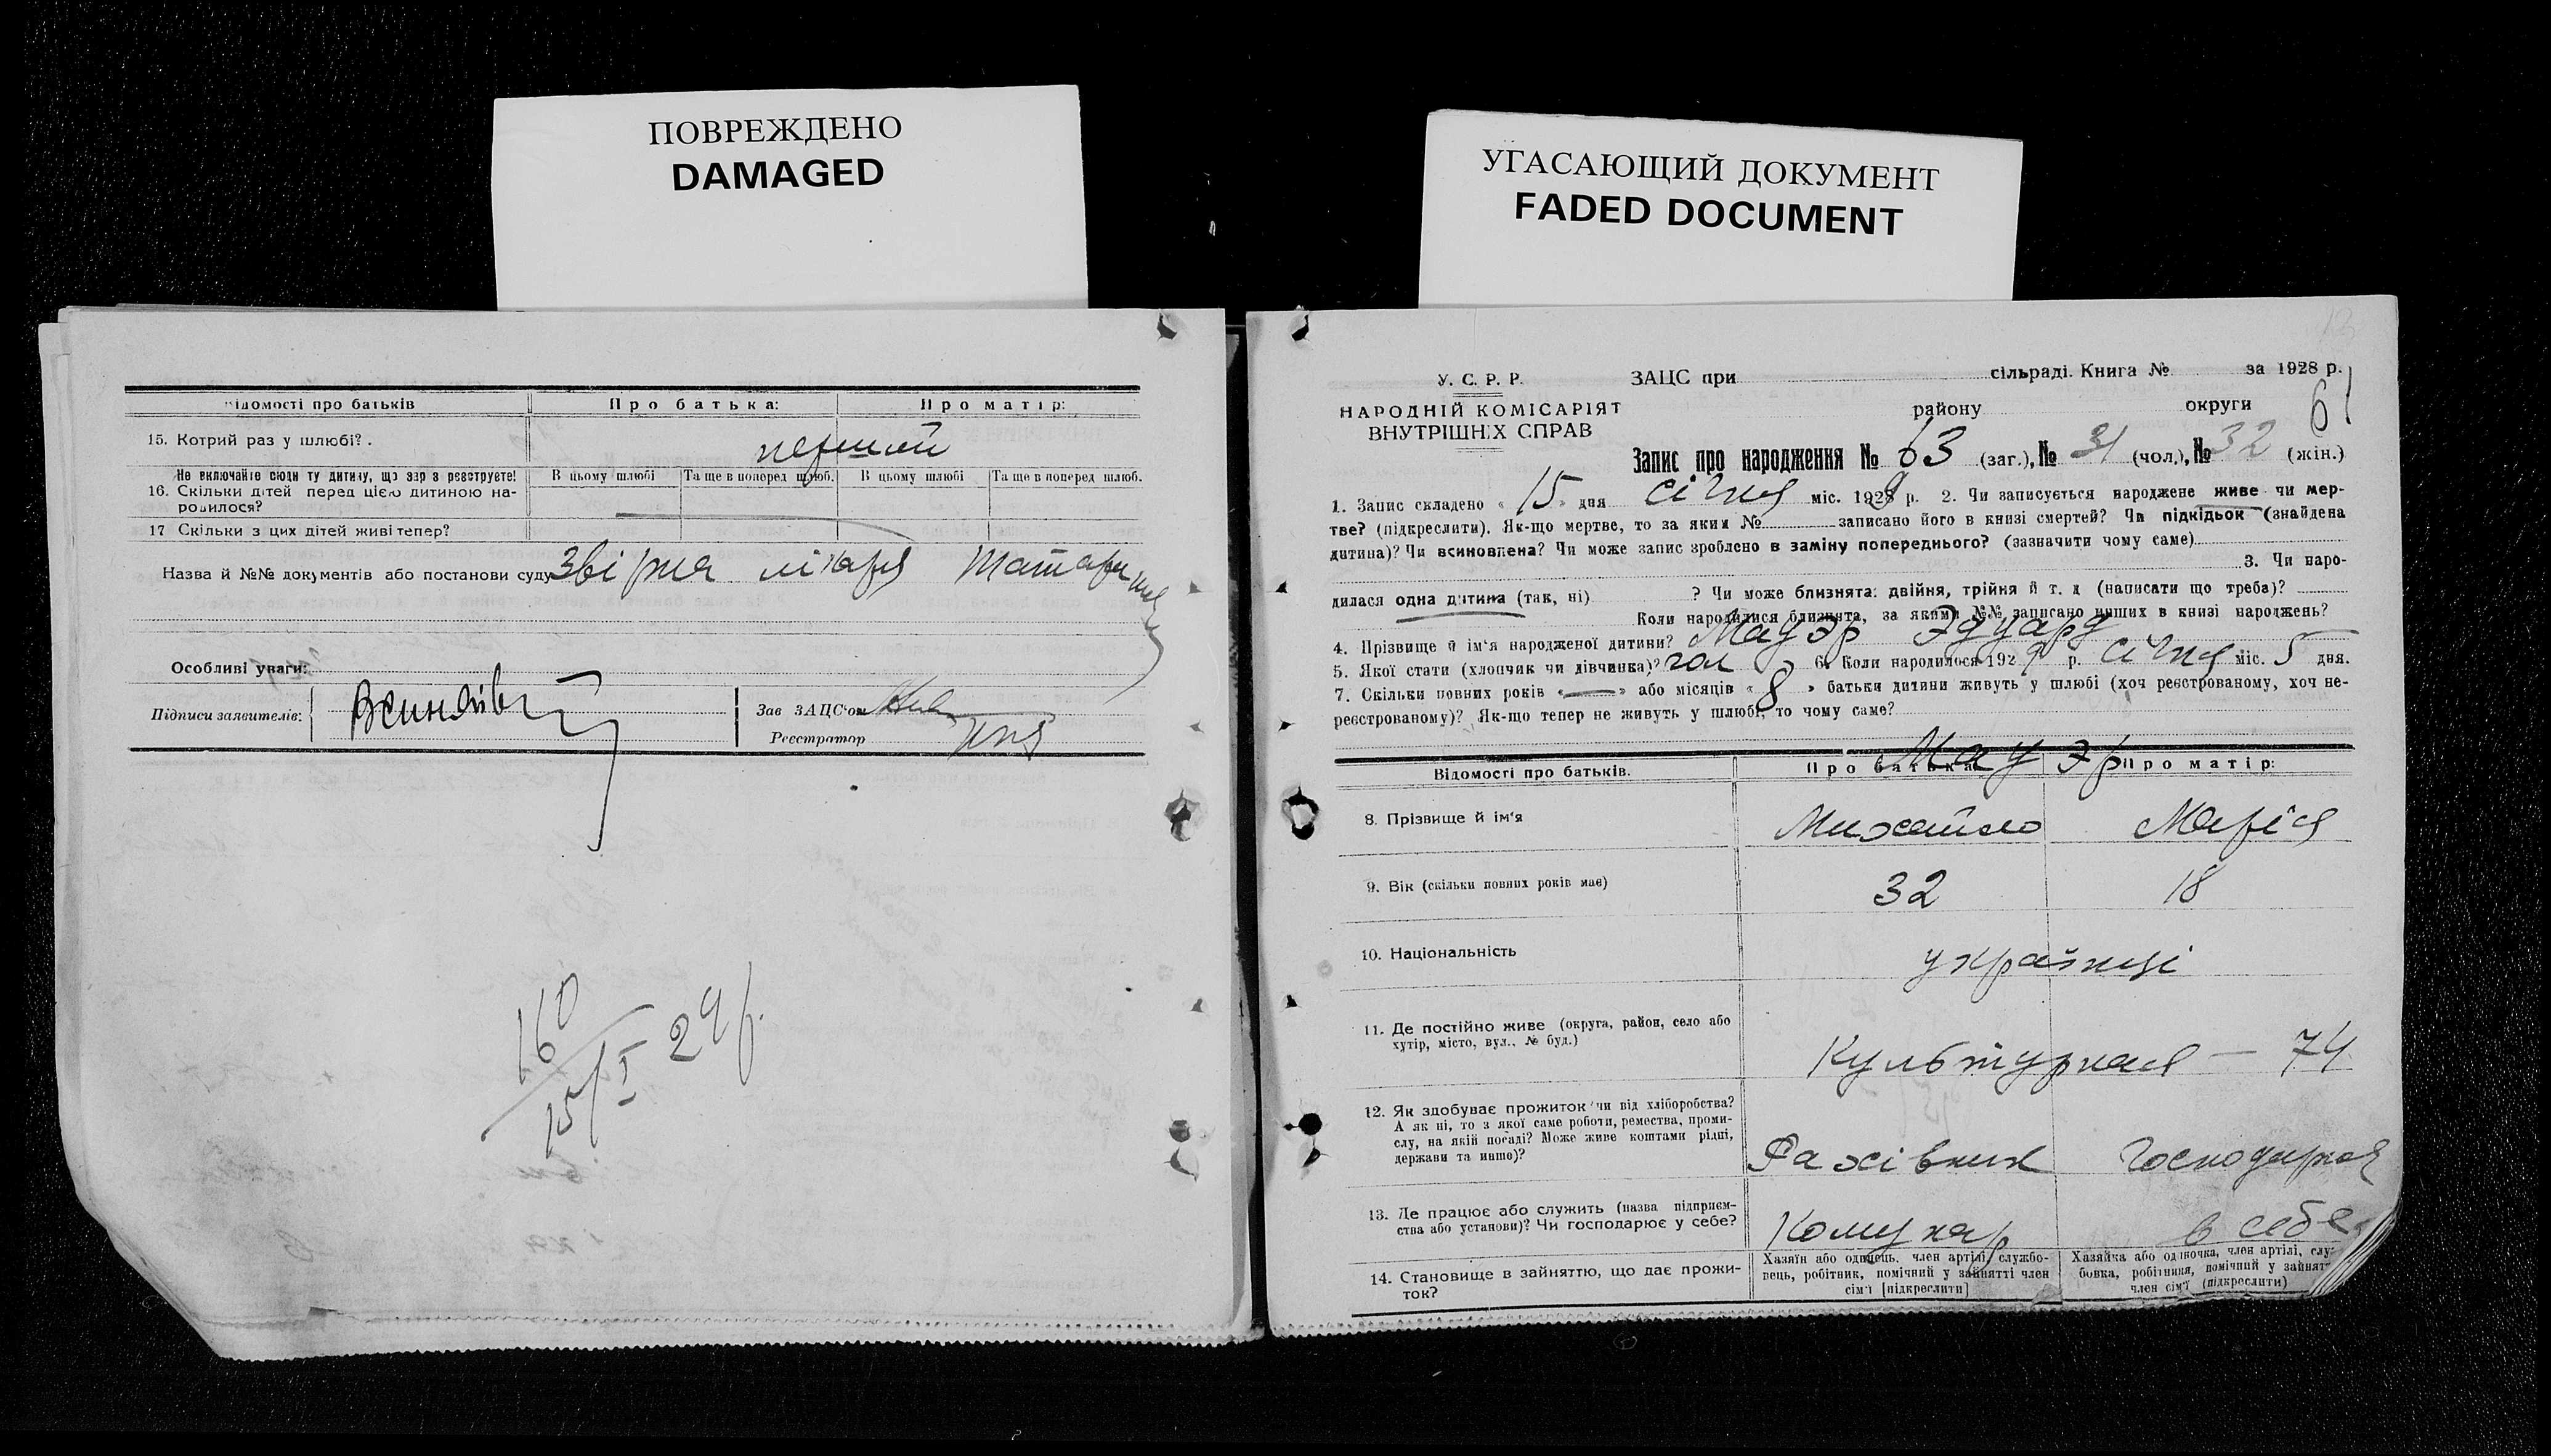 ПОВРЕЖДЕНО
DAMAGED
УГАСАЮЩИЙ ДОКУМЕНТ
FADED DOCUMENT
Відомості про батьків
Про батька:
Про матір:
15. Котрий раз у шлюбі?
перший
Не включайте сюди ту дитину, що зараз реєструєте!
В цьому шлюбі
Та ще в поперед шлюб.
В цьому шлюбі
Та ще в поперед шлюб.
16. Скільки дітей перед цією дитиною на-
родилося?
17 Скільки з цих дітей живі тепер?
Назва й №№ документів або постанови суду Звірня лікаря
Особливі уваги:
Підписи заявителів:
Зав ЗАЦС'ом
Реєстратор
160
15/I 29 р.
У. С. Р. Р.
НАРОДНІЙ КОМІСАРІЯТ
ВНУТРІШНІХ СПРАВ
ЗАЦС при сільраді. Книга № за 1928 р.
району округи
61
Запис про народження № 63 (заг.), № 31 (чол.), № 32 (жін.)
1. Запис складено « 15 » дня січня міс. 1929 р. 2. Чи записується народжене живе чи мер-
тве? (підкреслити). Як-що мертве, то за яким № записано його в книзі смертей? Чи підкідьок (знайдена
дитина)? Чи всиновлена? Чи може запис зроблено в заміну попереднього? (зазначити чому саме)
3. Чи наро-
дилася одна дитина (так, ні) ? Чи може близнята: двійня, трійня й т. д (написати що треба)?
Коли народилися близнята, за якими №№ записано инших в книзі народжень?
4. Прізвище й ім'я народженої дитини? Мауэр Эдуард
5. Якої стати (хлопчик чи дівчинка)? чол 6. Коли народилося 1929 р. січня міс. 5 дня.
7. Скільки повних років « — » або місяців « 8 » батьки дитини живуть у шлюбі (хоч реєстрованому, хоч не-
реєстрованому)? Як-що тепер не живуть у шлюбі, то чому саме?
Відомості про батьків.
Про батька
Про матір:
Мауэр
8. Прізвище й ім'я
Михайло
Марія
9. Вік (скільки повних років має)
32
18
10. Національність
українці
11. Де постійно живе (округа, район, село або
хутір, місто, вул., № буд.)
Культурная — 74
12. Як здобуває прожиток чи від хліборобства?
А як ні, то з якої саме роботи, ремества, проми-
слу, на якій посаді? Може живе коштами рідні,
держави та инше)?
Рахівник
Господарная
13. Де працює або служить (назва підприєм-
ства або установи)? Чи господарює у себе?
Комунар
в себе
14. Становище в зайняттю, що дає прожи-
ток?
Хазяїн або одинець, член артілі, службо-
вець, робітник, помічний у зайнятті член
сім'ї [підкреслити]
Хазяйка або одиночка, член артілі, слу-
бовка, робітниця, помічний у зайнят
член сім'ї (підкреслити)